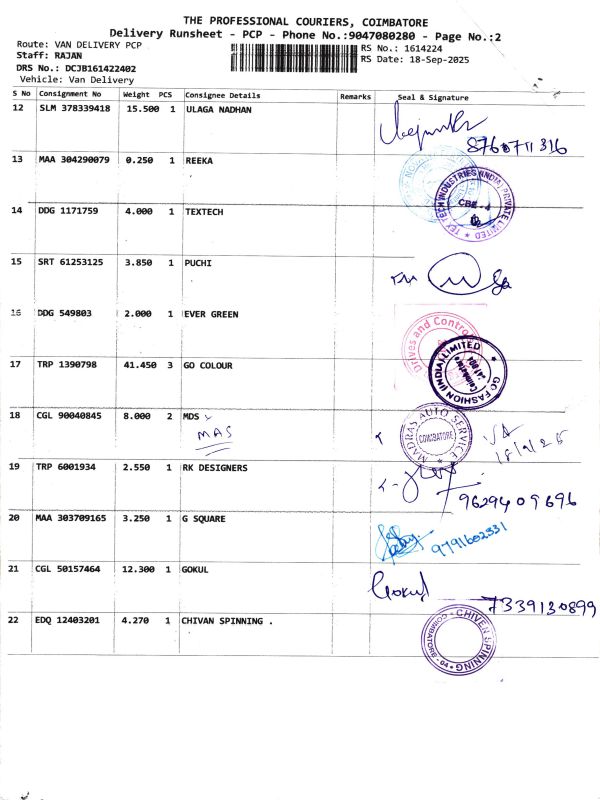 THE PROFESSIONAL COURIERS, COIMBATORE
Delivery Runsheet - PCP - Phone No.:9047080280 - Page No.:2
Route: VAN DELIVERY PCP
Staff: RAJAN
DRS No.: DCJB1614222402
Vehicle: Van Delivery
RS No.: 1614224
RS Date: 18-Sep-2025
S No Consignment No Weight PCS Consignee Details Remarks Seal & Signature
12 SLM 378339418 15.500 1 ULAGA NADHAN
8760711316
13 MAA 304290079 0.250 1 REEKA
TEX TECH INDUSTRIES (INDIA) PRIVATE LIMITED
CBE - 4
14 DDG 1171759 4.000 1 TEXTECH
15 SRT 61253125 3.850 1 PUCHI
16 DDG 549803 2.000 1 EVER GREEN
Drives and Contro
17 TRP 1390798 41.450 3 GO COLOUR
GO FASHION (INDIA) LIMITED
Coimbatore
18 CGL 90040845 8.000 2 MDS
MAS
MADRAS AUTO SERVICE
COIMBATORE
18/9/25
19 TRP 6001934 2.550 1 RK DESIGNERS
9629409696
20 MAA 303709165 3.250 1 G SQUARE
9791602331
21 CGL 50157464 12.300 1 GOKUL
Gokul
7339130899
22 EDQ 12403201 4.270 1 CHIVAN SPINNING .
CHIVEN SPINNING
COIMBATORE - 04